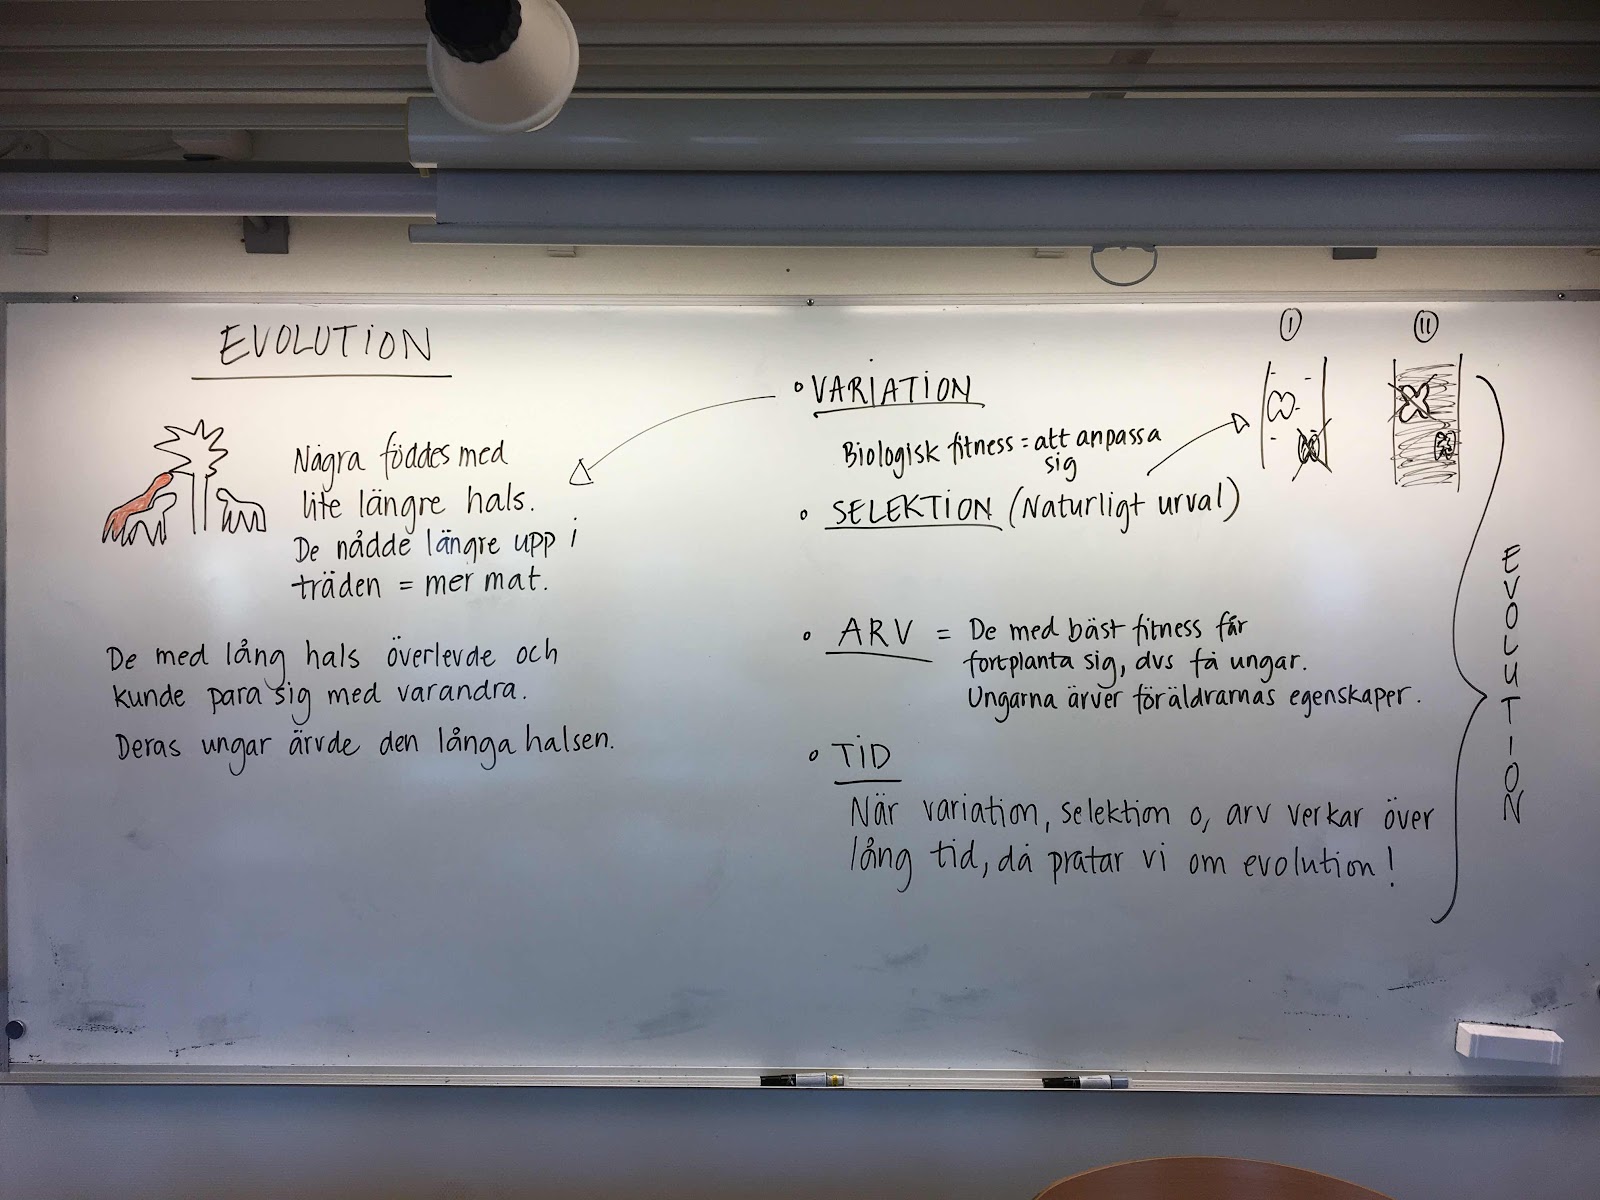 EVOLUTION
Några föddes med
lite längre hals.
De nådde längre upp i
träden = mer mat.
De med lång hals överlevde och
kunde para sig med varandra.
Deras ungar ärvde den långa halsen.
I
II
• VARIATION
Biologisk fitness = att anpassa
sig
• SELEKTION (Naturligt urval)
• ARV = De med bäst fitness får
fortplanta sig, dvs få ungar.
Ungarna ärver föräldrarnas egenskaper.
• TID
När variation, selektion o, arv verkar över
lång tid, då pratar vi om evolution!
EVOLUTION